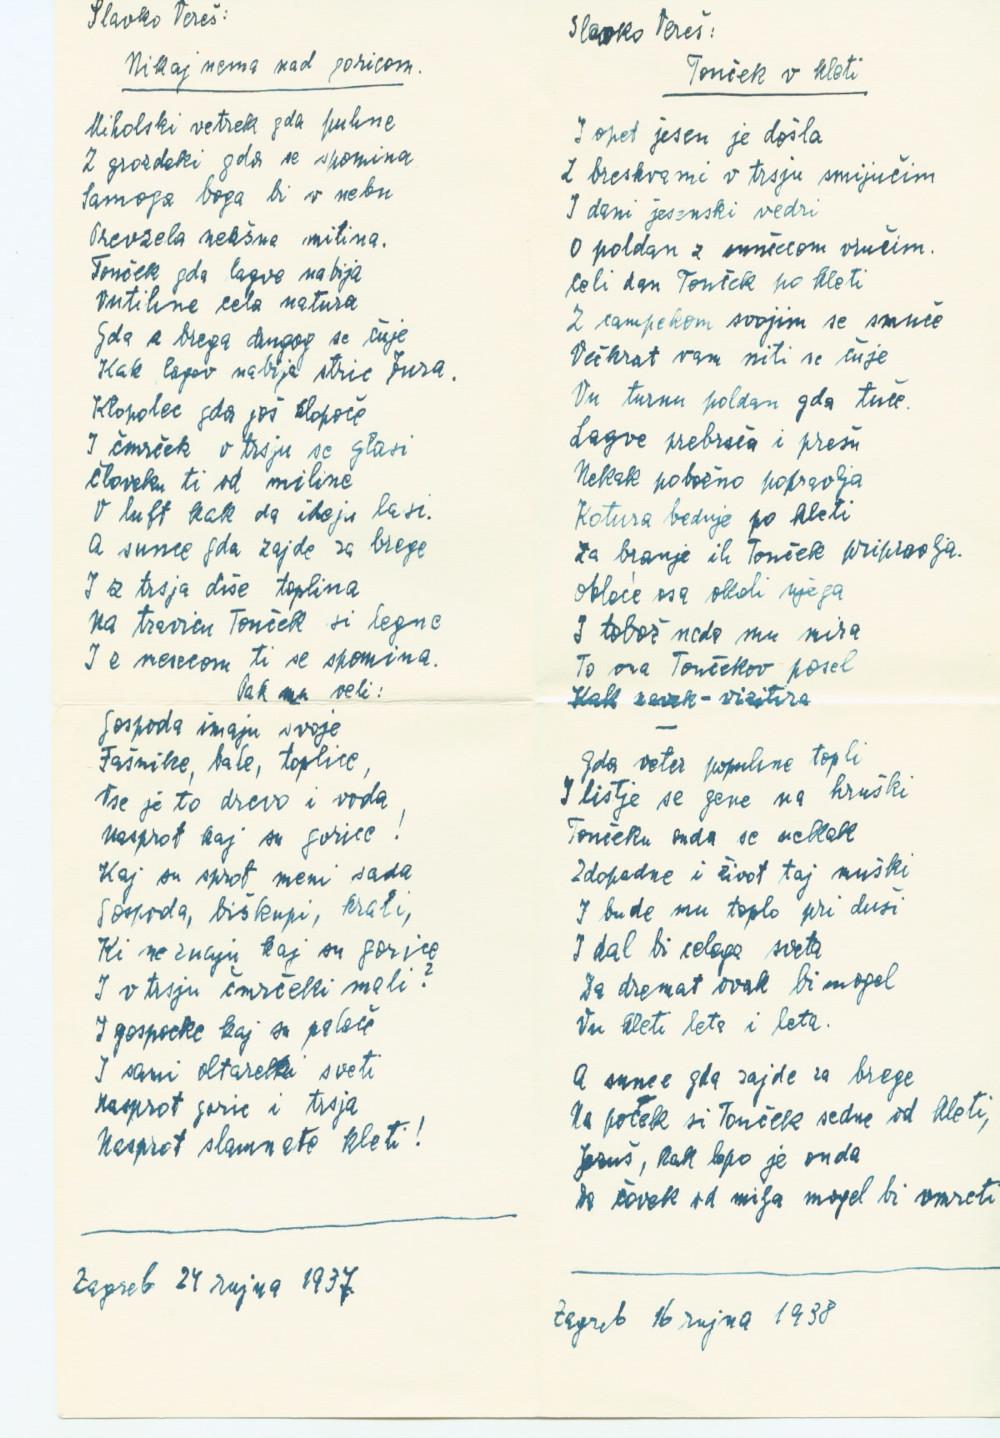 Slavko Vereš:
Nikaj nema nad goricom.
Miholski vetrek gda puhne
Z grozdeki gda se spomina
Samoga boga bi v nebu
Prevzela nekšna milina.
Tonček gda lagve nabija
Vutihne cela natura
Gda z brega drugog se čuje
Kak lagov nabija stric Jura.
Klopolec gda još klopoče
I čmrček v trsju se glasi
Človeku ti od miline
V luft kak da ideju lasi.
A sunce gda zajde za brege
I z trsja diše toplina
Na travicu Tonček si legne
I z mesecom ti se spomina.
Pak mu veli:
Gospoda imaju svoje
Fašnike, bale, toplice,
Vse je to drevo i voda
Nasprot kaj su gorice!
Kaj su sprot meni sada
Gospoda, biškupi, krali,
Ki ne znaju kaj su gorice
I v trsju čmrčeki mali?
I gospocke kaj su palače
I sami oltareki sveti
Nasprot goric i trsja
Nasprot slamnate kleti!
Zagreb 24 rujna 1937.
Slavko Vereš:
Tonček v kleti
I opet jesen je došla
Z breskvami v trsju smijučim
I dani jesenski vedri
O poldan z sunčecom vručim.
Celi dan Tonček po kleti
Z campekom svojim se smuče
Večkrat vam niti ne čuje
Vu turnu poldan gda tuče.
Lagve prebrača i prešu
Nekak pobožno popravlja
Kotura beduje po kleti
Za branje ih Tonček pripravlja.
Obleće osa okoli njega
I tobož neda mu mira
To ona Tončekov posel
Kak navek - vizitira
—
Gda veter popuhne topli
I listje se gene na hruški
Tončeku onda se nekak
Zdopadne i život taj muški
I bude mu toplo pri duši
I dal bi celoga sveta
Da dremat ovak bi mogel
Vu kleti leta i leta.
A sunce gda zajde za brege
Na poček si Tonček sedne od kleti,
Jezuš, kak lepo je onda
Da čovek od milja mogel bi vmreti
Zagreb 16 rujna 1938